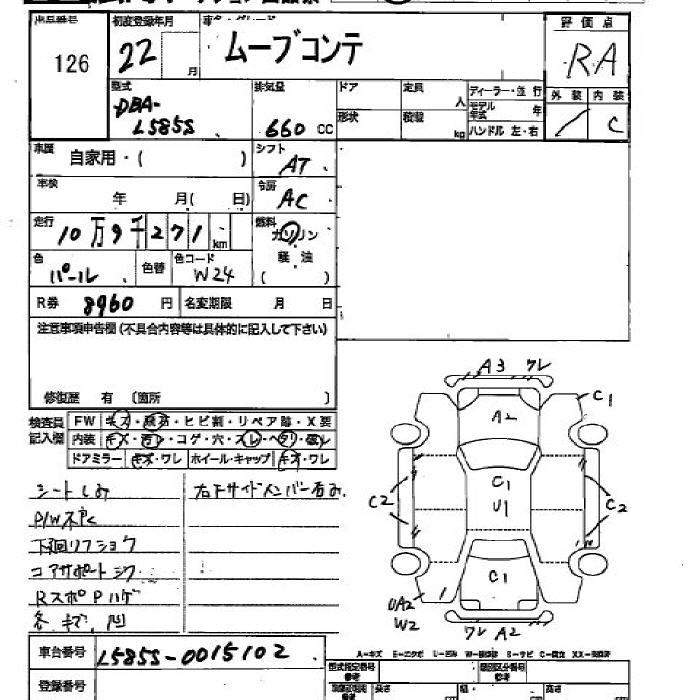 出品番号 初度登録年月 車名・グレード 評価点
126 22 月 ムーブコンテ RA
型式 排気量 ドア 定員 人 ディーラー・並行 外装 内装
DBA-L585S 660 CC 形状 積載 kg モデル年式 年 C
ハンドル 左・右
車歴 自家用・( ) シフト AT
車検 年 月( 日) 冷房 AC
走行 10万9千271 km 燃料 ガソリン
色 パール 色替 色コード W24 軽油 ( )
R券 8960円 名変期限 月 日
注意事項申告欄(不具合内容等は具体的に記入して下さい)
修復歴 有 〔箇所 〕
検査員記入欄 FW キズ・飛石・ヒビ割・リペア跡・X要
内装 キズ・汚レ・コゲ・穴・スレ・ヘタリ・
ドアミラー キズ・ワレ ホイール・キャップ キズ・ワレ
シートしみ 右下サイドメンバー
P/W不良
下廻リフショク
コアサポート
RスポPハゲ
A3 ワレ
C1
A2
C1
U1
C2
C2
C1
UA2
W2
ワレ A2
車台番号 L585S-0015102
登録番号
A-キズ E-エクボ U-凹み S-サビ
型式指定番号 類別区分番号
長さ 幅 高さ